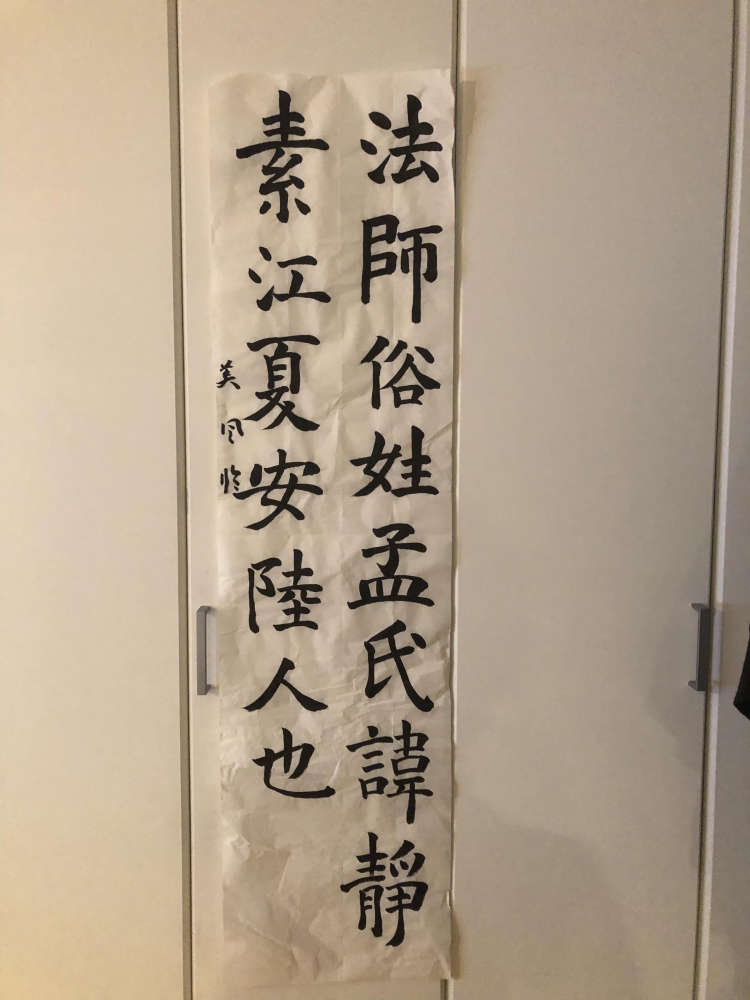 法師俗姓孟氏諱靜
素江夏安陸人也
美風臨